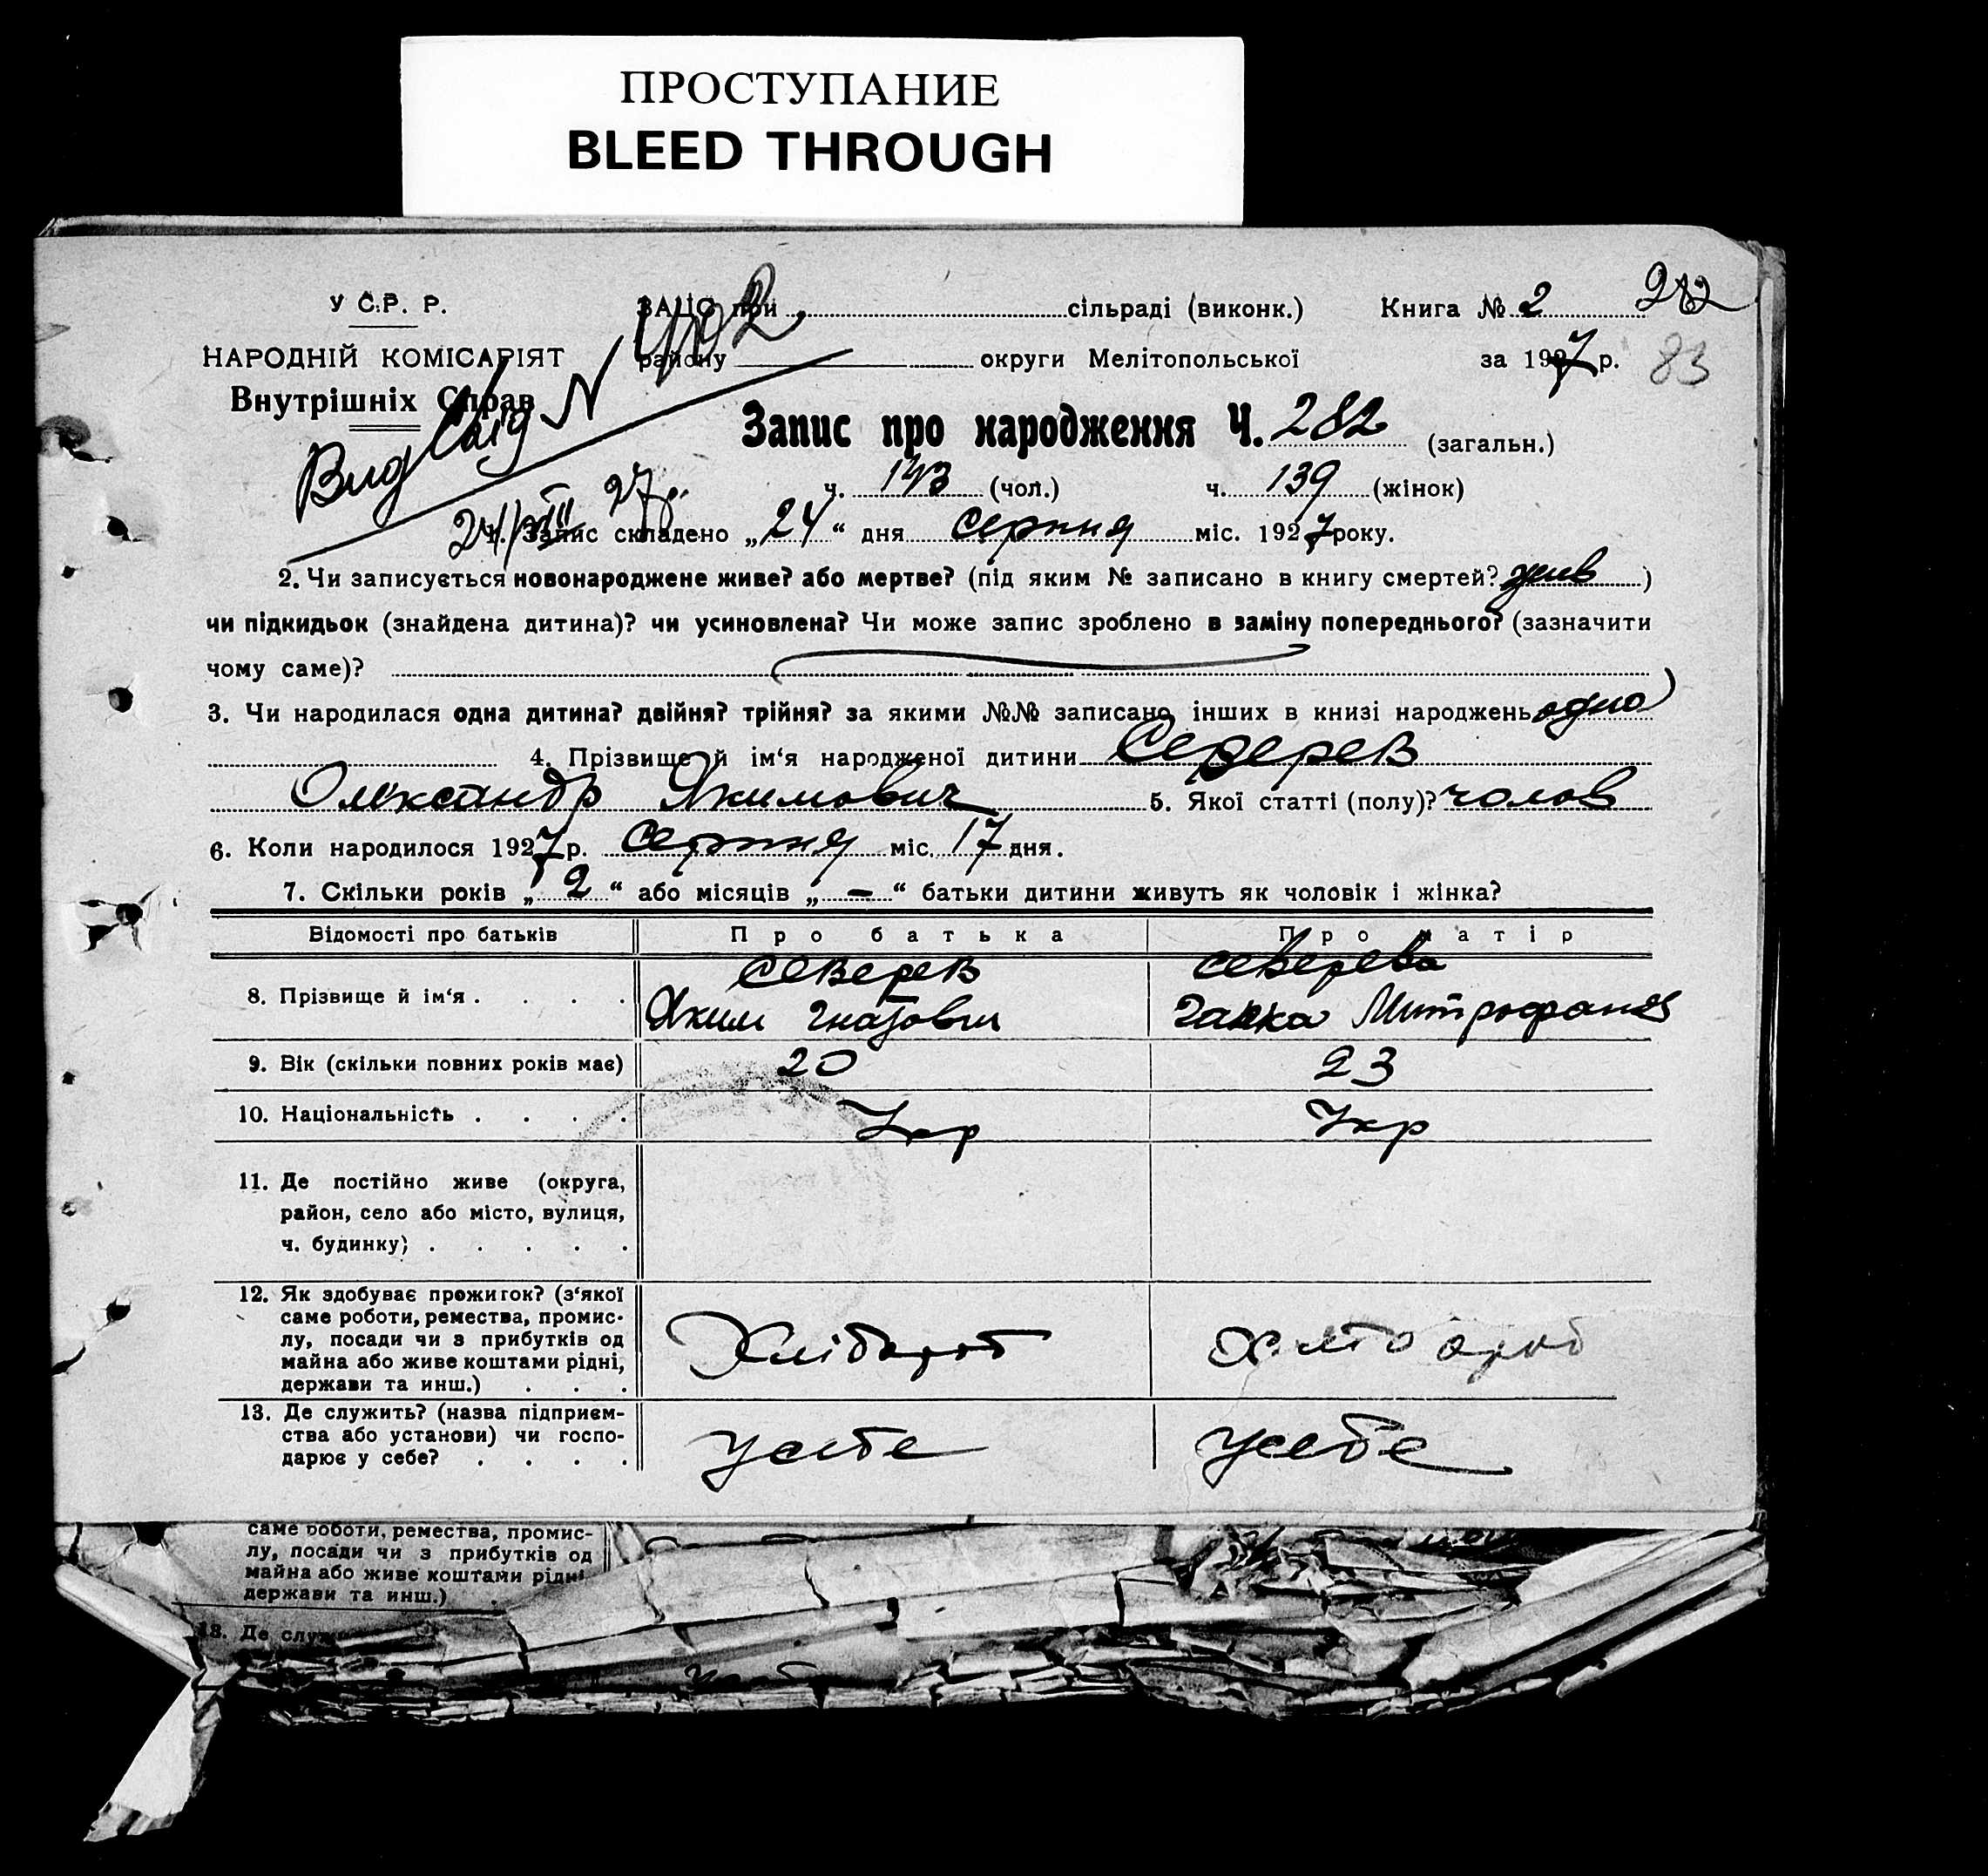 ПРОСТУПАНИЕ
BLEED THROUGH
У С.Р. Р.
ЗАЦС при сільраді (виконк.) Книга № 2 282
НАРОДНІЙ КОМІСАРІЯТ району округи Мелітопольської за 1927 р. 83
Внутрішніх Справ
Вид Свід N
Запис про народження Ч. 282 (загальн.)
24/VIII 27р.
ч. 143 (чол.) ч. 139 (жінок)
1. Запис складено „24“ дня серпня міс. 1927 року.
2. Чи записується новонароджене живе? або мертве? (під яким № записано в книгу смертей? жив)
чи підкидьок (знайдена дитина)? чи усиновлена? Чи може запис зроблено в заміну попереднього? (зазначити
чому саме)?
3. Чи народилася одна дитина? двійня? трійня? за якими №№ записано інших в книзі народжень одно
4. Прізвище й ім‘я народженої дитини Северев
Олександр Якимович 5. Якої статті (полу)? чолов
6. Коли народилося 1927 р. серпня міс. 17 дня.
7. Скільки років „2“ або місяців „—“ батьки дитини живуть як чоловік і жінка?
Відомості про батьків Про батька Про матір
8. Прізвище й ім‘я . . . . Северев Северева
Яким Гнатович Ганка Митрофанов
9. Вік (скільки повних років має) 20 23
10. Національність . . . . Укр Укр
11. Де постійно живе (округа,
район, село або місто, вулиця,
ч. будинку) . . . . .
12. Як здобуває прожиток? (з‘якої
саме роботи, ремества, промис-
лу, посади чи з прибутків од
майна або живе коштами рідні,
держави та инш.) . . .
Хлібороб Хлібороб
13. Де служить? (назва підприєм-
ства або установи) чи госпо-
дарює у себе? . . . .
усебе усебе
саме роботи, ремества, промис-
лу, посади чи з прибутків од
майна або живе коштами рідні
держави та инш.) .
13. Де служ